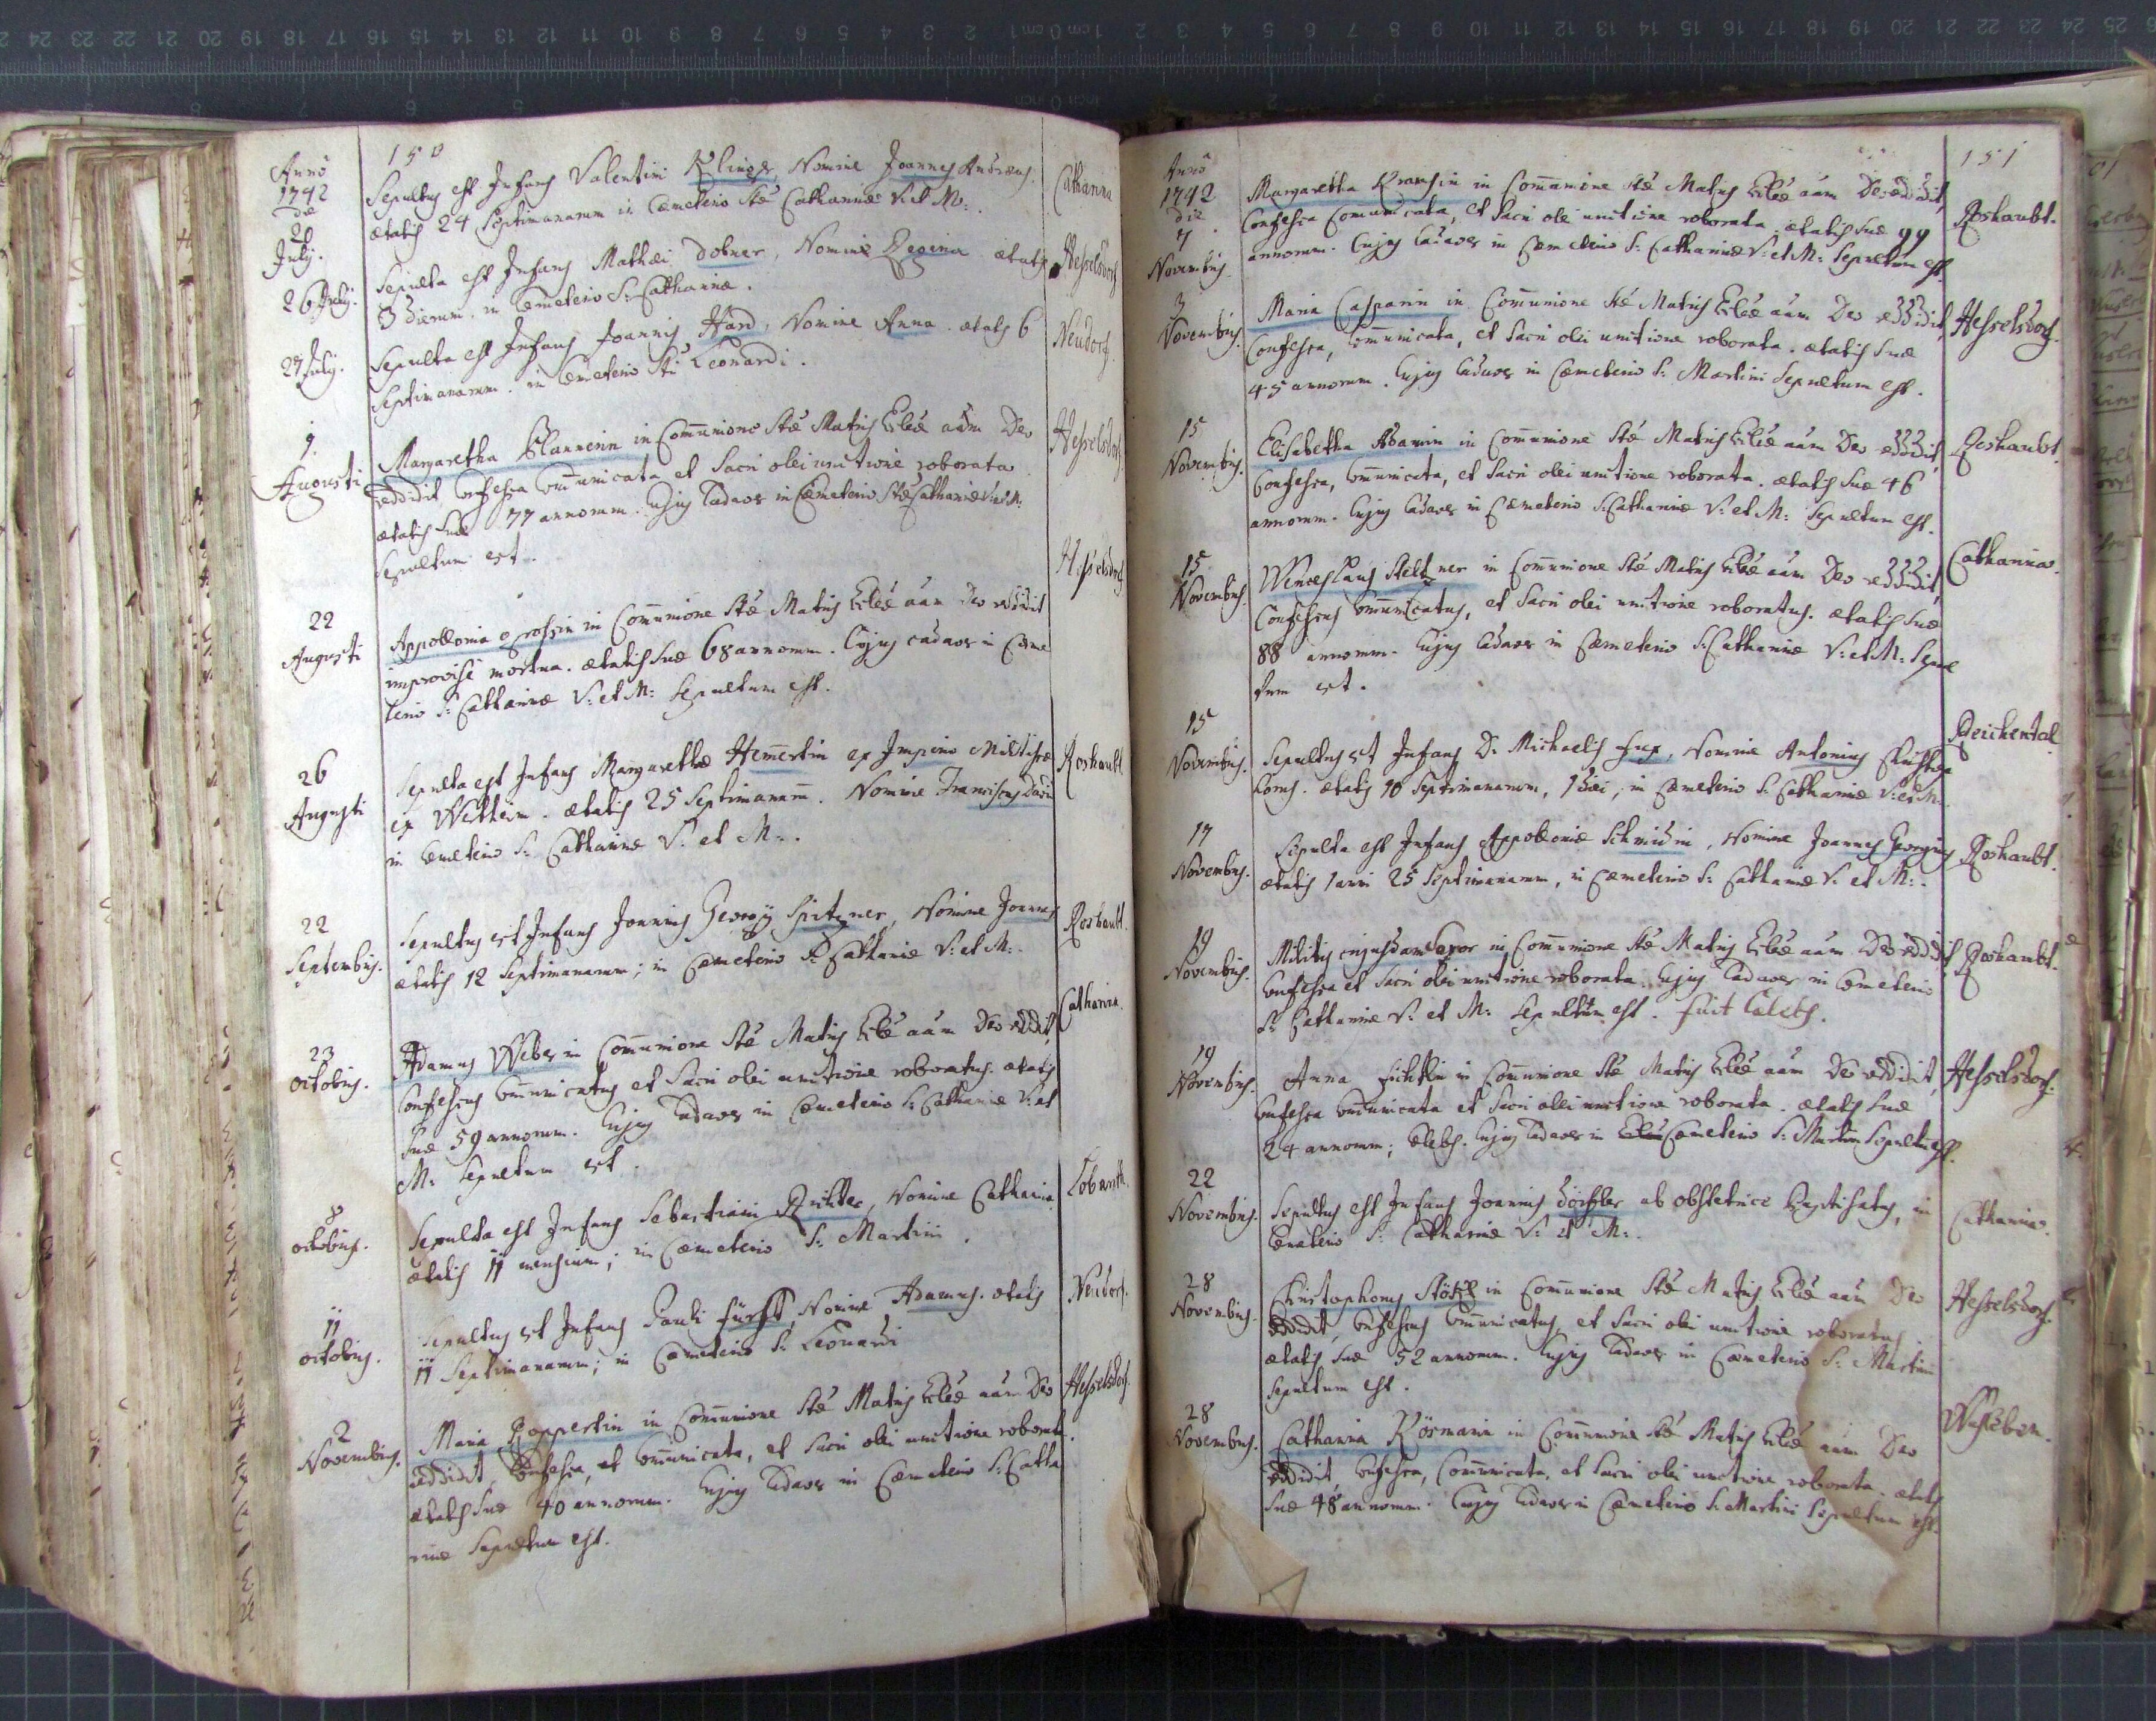 150
Anno
1742
die
20
July.
Sepultus est Infans Valentini Klinger, Nomine Joannes Andreas.
ætatis 24 Septimanarum in Cæmeterio Stæ Catharinæ V. et M:.
Catharina
26 July.
Sepulta est Infans Mathæi Dobner, Nomine Regina ætatis
3 dierum. in Cæmeterio S: Catharinæ.
Hesselsdorf
27 July.
Sepulta est Infans Joannis Hard, Nomine Anna. ætatis 6
Septimanarum. in Cæmeterio Sti Leonardi.
Neudorf.
9
Augusti
Margaretha in Com̄unione Stæ Matris Eccl̄æ aām Deo
reddidit Confessa Com̄unicata et Sacri olei unctione roborata
ætatis suæ 77 annorum. Cujus Cadaver in Cæmeterio Stæ Catharinæ V. et M:
Sepultum est.
Hesselsdorf.
22
Augusti
Appollonia Grossin in Com̄unione Stæ Matris Eccl̄æ aām Deo reddidit
improvisè mortua. ætatis suæ 68 annorum. Cujus cadaver in Cæme
terio S: Catharinæ V: et M: Sepultum est.
Hesselsdorf
26
Augusti
Sepulta est Infans Margarethæ Hem̄ertin ex Imperio
ex ætatis 25 Septimanarum. Nomine Franciscus
in Cæmeterio S: Catharinæ V: et M:.
Roshaubt
22
Septembris.
Sepultus est Infans Joannis Georgij Spitzner, Nomine Joannes
ætatis 12 Septimanarum; in Cæmeterio S: Catharinæ V: et M:.
Roshaubt.
23
octobris.
Adamus Weber in Com̄unione Stæ Matris Eccl̄æ aām Deo reddidit,
Confessus Com̄unicatus et Sacri olei unctione roboratus. ætatis
suæ 59 annorum. Cujus Cadaver in Cæmeterio S: Catharinæ V: et
M: Sepultum est.
Catharina.
8
octobris.
Sepulta est Infans Sebastiani Richter, Nomine Catharina
ætatis 11 mensium; in Cæmeterio S: Martini.
11
octobris.
Sepultus est Infans Pauli fürst, Nomine Adamus. ætatis
11 Septimanarum; in Cæmeterio S: Leonardi
Neudorf.
2
Novembris.
Maria Poppertin in Com̄unione Stæ Matris Eccl̄æ aām Deo
reddidit, Confessa, et Com̄unicata, et Sacri olei unctione roborata.
ætatis suæ 40 annorum. Cujus Cadaver in Cæmeterio S: Catha
rinæ Sepultum est.
Hesselsdorf.
151
Anno
1742
die
7
Novembris.
Margaretha Kransin in Com̄unione Stæ Matris Eccl̄æ aām Deo reddidit,
Confessa Com̄unicata, et Sacri olei unctione roborata. ætatis suæ 99
annorum. Cujus Cadaver in Cæmeterio S: Catharinæ V: et M: Sepultum est.
Roshaubt.
3
Novembris.
Maria Casparin in Com̄unione Stæ Matris Eccl̄æ aām Deo reddidit,
Confessa, Com̄unicata, et Sacri olei unctione roborata. ætatis suæ
45 annorum. Cujus Cadaver in Cæmeterio S: Martini Sepultum est.
Hesselsdorf.
15
Novembris.
Elisabetha Adamin in Com̄unione Stæ Matris Eccl̄æ aām Deo reddidit,
Confessa, Com̄unicata, et Sacri olei unctione roborata. ætatis suæ 46
annorum. Cujus Cadaver in Cæmeterio S: Catharinæ V: et M: Sepultum est.
Roshaubt.
15
Novembris.
Wenceslaus Steltzner in Com̄unione Stæ Matris Eccl̄æ aām Deo reddidit,
Confessus Com̄unicatus, et Sacri olei unctione roboratus. ætatis suæ
88 annorum. Cujus Cadaver in Cæmeterio S: Catharinæ V: et M: Sepul
tum est.
Catharina.
15
Novembris.
Sepultus est Infans D. Michaelis, Nomine Antonius
ætatis 10 Septimanarum, 1 diei, in Cæmeterio S. Catharinæ V: et M:.
Reichental
17
Novembris.
Sepulta est Infans Appolloniæ Schmidin, Nomine Joannes Georgius
ætatis 1 anni 25 Septimanarum, in Cæmeterio S: Catharinæ V. et M:.
Roshaubt.
19
Novembris.
Militis cujusdam Soror in Com̄unione Stæ Matris Eccl̄æ aām Deo reddidit
Confessa et Sacri olei unctione roborata. Cujus Cadaver in Cæmeterio
S: Catharinæ V: et M: Sepultum est. fuit Cælebs.
Roshaubt.
19
Novembris.
Anna fichtlin in Com̄unione Stæ Matris Eccl̄æ aām Deo reddidit,
Confessa Com̄unicata et Sacri olei unctione roborata. ætatis suæ
24 annorum; Cælebs. Cujus Cadaver in Cæmeterio S: Martini Sepultum est.
Hesselsdorf.
22
Novembris.
Sepultus est Infans Joannis Dörfler ab obstetrice Baptisatus, in
Cæmeterio S: Catharinæ V: et M:.
Catharina.
28
Novembris.
Christophorus Stökl in Com̄unione Stæ Matris Eccl̄æ aām Deo
reddidit, Confessus Com̄unicatus, et Sacri olei unctione roboratus
ætatis suæ 52 annorum. Cujus Cadaver in Cæmeterio S: Martini
Sepultum est.
Hesselsdorf.
28
Novembris.
Catharina Körmanin in Com̄unione Stæ Matris Eccl̄æ aām Deo
reddidit, Confessa, Com̄unicata, et Sacri olei unctione roborata. ætatis
suæ 48 annorum. Cujus Cadaver in Cæmeterio S. Martini Sepultum est.